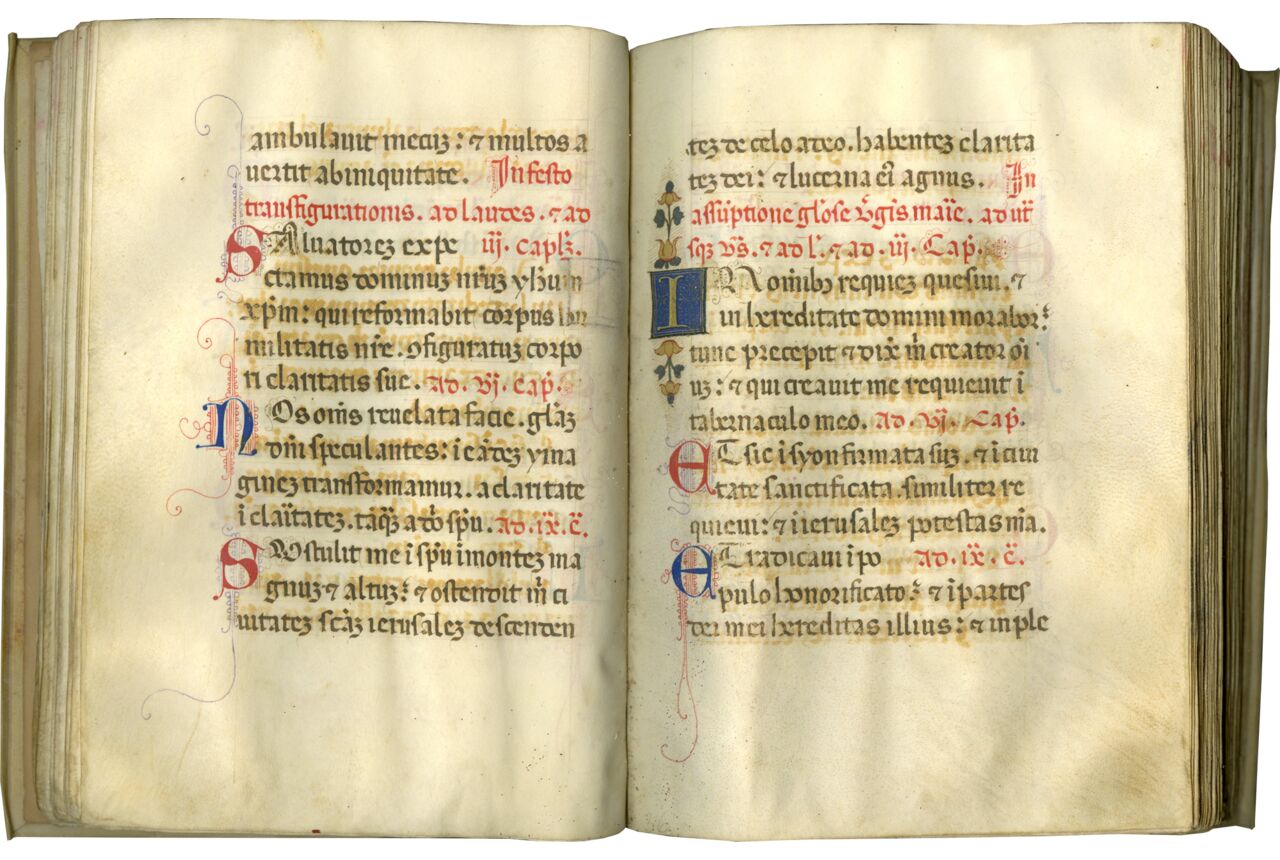 ambulauit mecuz: ⁊ multos a
uertit ab iniquitate. In festo
transfigurationis. ad laudes. ⁊ ad
SAluatorez expe iij. caplz.
ctamus dominuz nrm̄ yhum
xpm̄: qui reformabit corpus hu
militatis nrē. ↄfiguratuz corpo
ri claritatis sue. ad. vj. cap̄.
NOs om̄s reuelata facie. gl̄az
dn̄i speculantes: i eādez yma
ginez transformamur. a claritate
ī claītatez. tāqȝ a dn̄o sp̄u. ad. ix. c̄.
SUstulit me ī sp̄u ī montez ma
gnuz ⁊ altuz: ⁊ ostendit m̄ ci
uitatez sc̄az ierusalez descenden
tez de celo a deo. habentez clarita
tez dei: ⁊ lucerna eī agnus. In
assūptione gl̄ose v̄gīs maīe. ad ut̄
sqȝ vs̄. ⁊ ad l̄. ⁊ ad. iij. Cap̄.
IN om̄ibȝ requiez quesiui. ⁊
in hereditate domini morabor:
tunc precepit ⁊ dix̄ m̄ creator oī
uz: ⁊ qui creauit me requieuit ī
tabernaculo meo. ad. vj. Cap̄.
ET sic ī syon firmata suz. ⁊ ī ciui
tate sanctificata. similiter re
quieui: ⁊ ī ierusalez potestas m̄a.
ET radicaui ī po ad. ix. c̄.
pulo honorificato: ⁊ ī partes
dei mei hereditas illius: ⁊ in ple